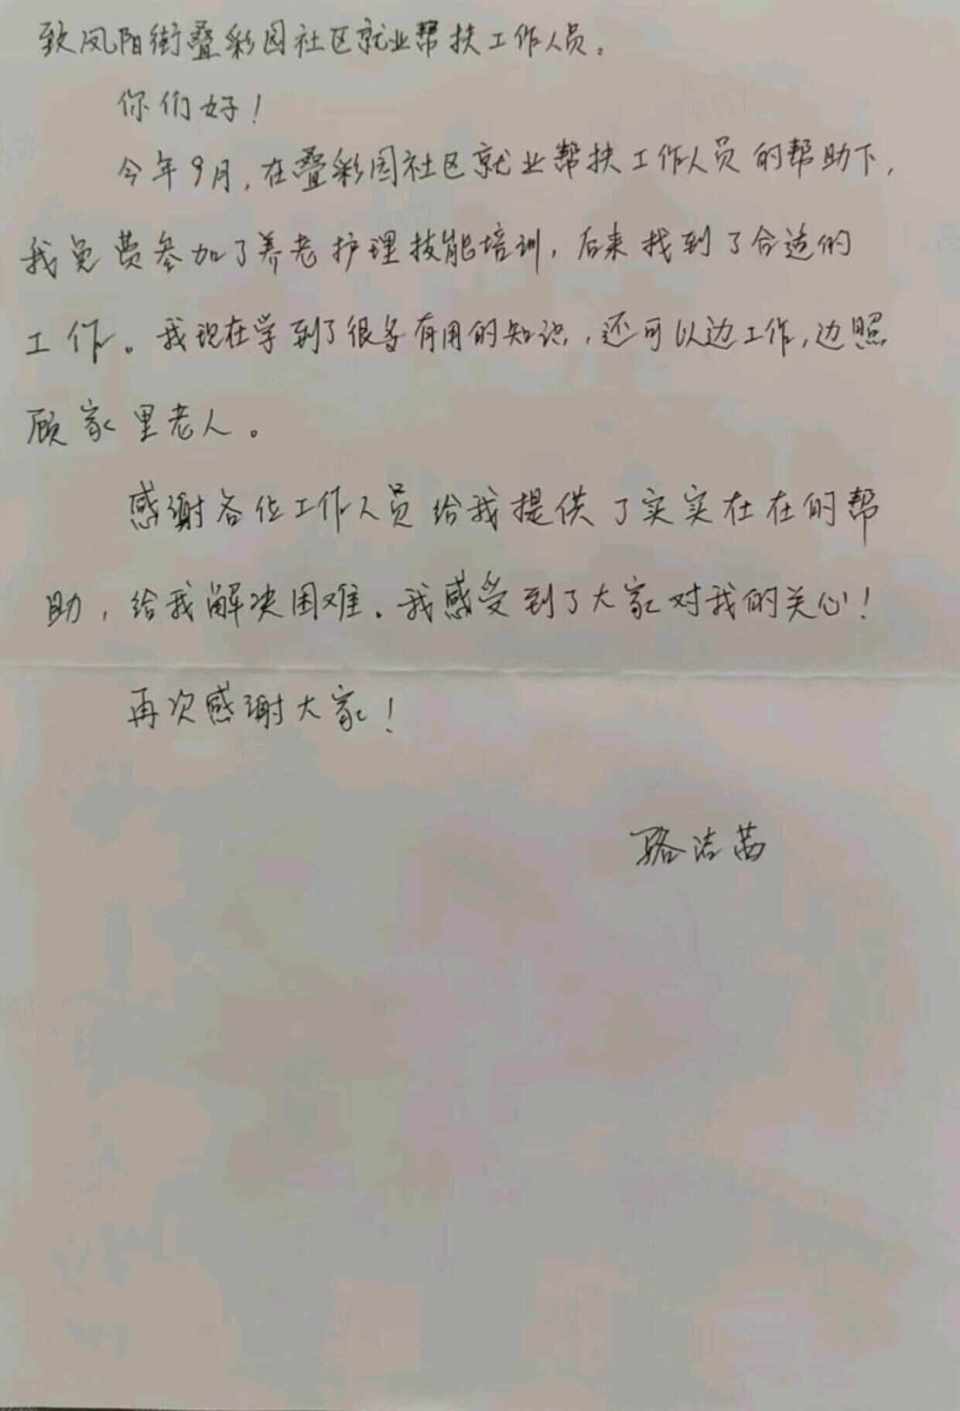 致凤阳街叠彩园社区就业帮扶工作人员。
你们好！
今年9月，在叠彩园社区就业帮扶工作人员的帮助下，
我免费参加了养老护理技能培训，后来找到了合适的
工作。我现在学到了很多有用的知识，还可以边工作，边照
顾家里老人。
感谢各位工作人员给我提供了实实在在的帮
助，给我解决困难。我感受到了大家对我的关心！
再次感谢大家！
骆洁茜